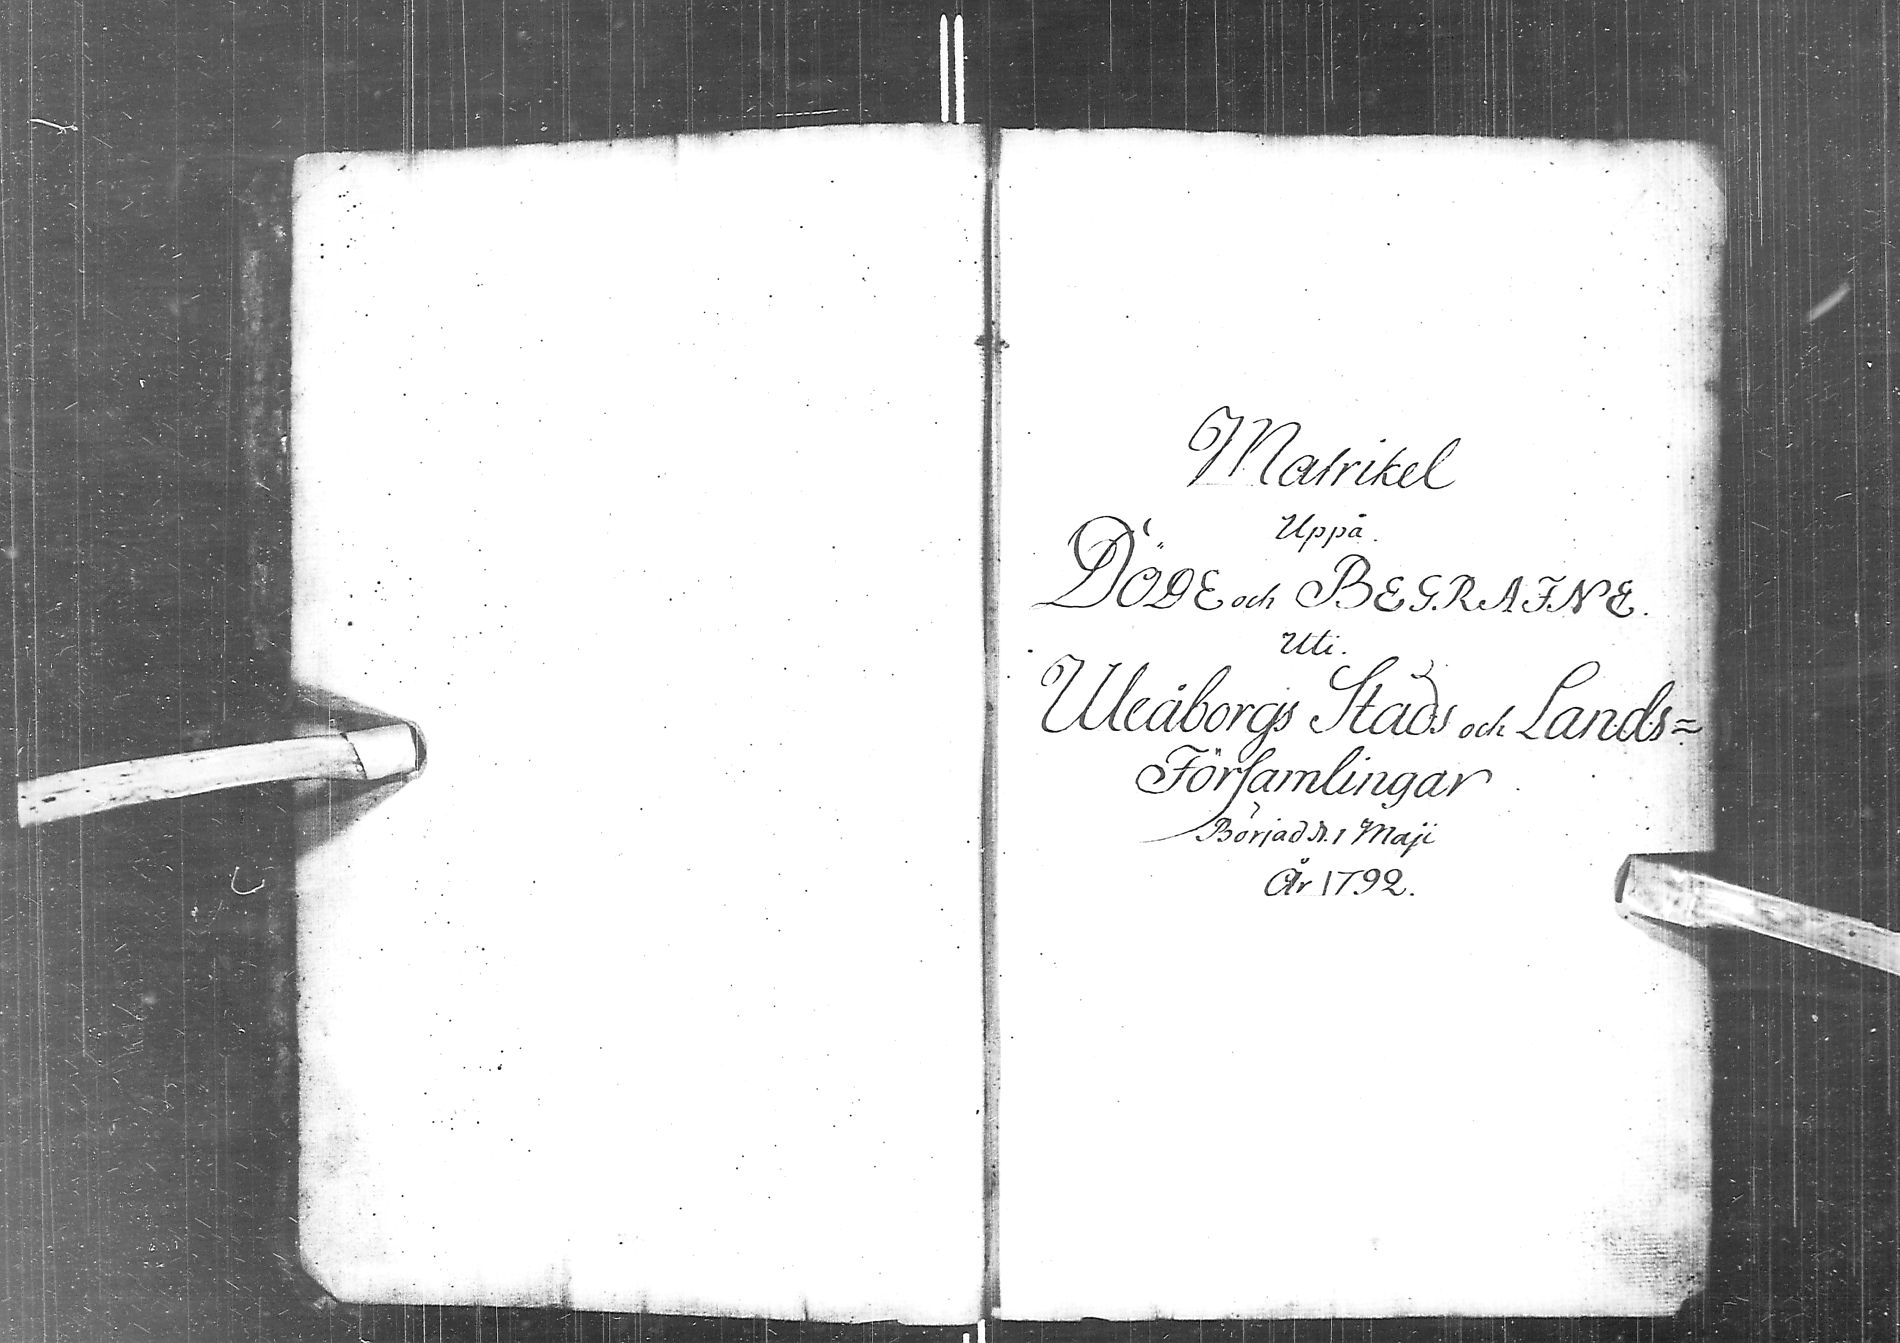 Matrikel
Uppå.
DÖDE och BEGRAFNE.
Uti.
Uleåborgs Stads och Lands=
Församlingar
Börjad d. 1 Maji
År 1792.